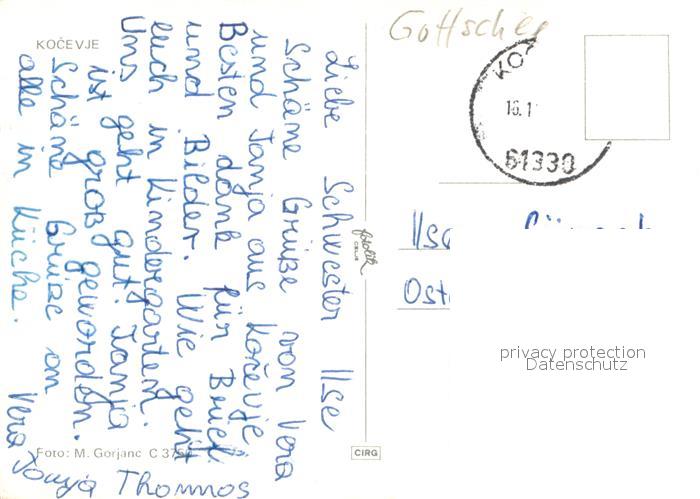 KOČEVJE
Liebe Schwester Ilse
schöne Grüße von Vera
und Tanja aus Kočevje
Besten dank für Brief
und Bilder. Wie geht
euch in Kindergarten.
Uns geht gut. Tanja
ist groß geworden.
schöne Grüße an
alle in Küche.
Vera
Tanja Thommos
Foto: M. Gorjanc C 375
fotolik
CELJE
CIRG
Gottschee
KO
16.1
61330
Ilse
Ost
privacy protection
Datenschutz